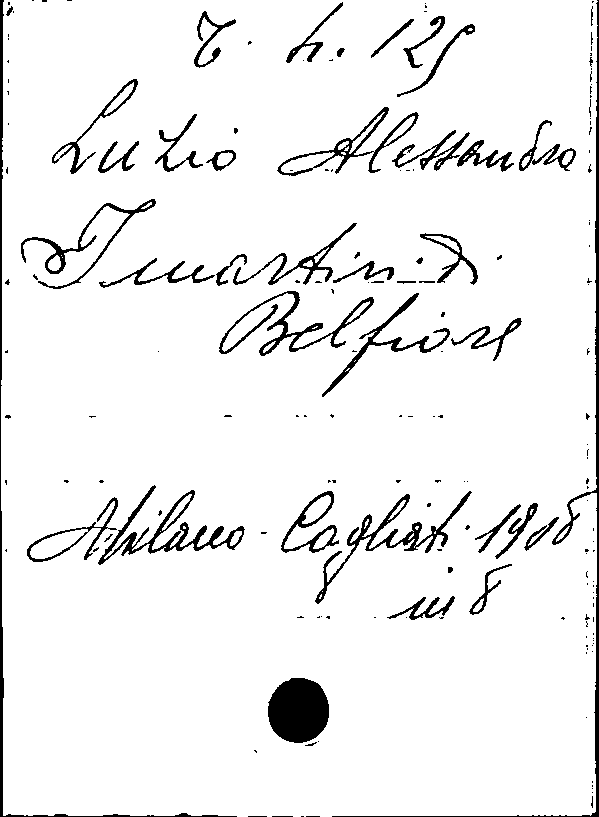 T. h. 125
Luzio Alessandro
I martiri di
Belfiore
Milano - Cogliati. 1908
in 8